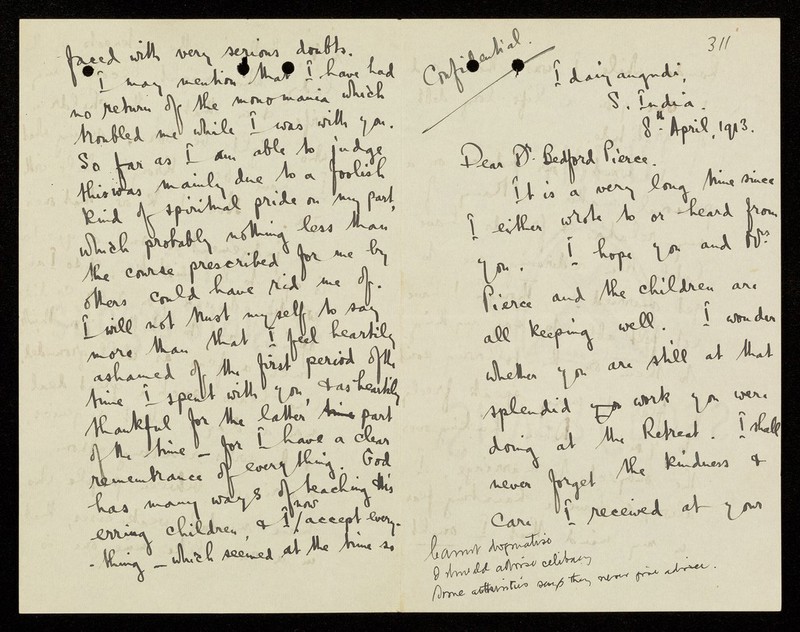 faced with very serious doubts.
I may mention that I have had
no return of the monomania which
troubled me while I was with you.
So far as I am able to judge
this was mainly due to a foolish
kind of spiritual pride on my part,
which probably nothing less than
the course prescribed for me by
others could have rid me of.
I will not trust myself to say
more than that I feel heartily
ashamed of the first period of the
time I spent with you, & as heartily
thankful for the latter time part
of the time – for I have a clear
remembrance of everything. God
has many ways of teaching His
erring children, & I now accept every-
-thing – which seemed at the time so
311
Confidential.
Idaiyangudi,
S. India.
8th April, 1913.
Dear Dr. Bedford Pierce.
It is a very long time since
I either wrote to or heard from
you. I hope you and Mrs
Pierce and the children are
all keeping well. I wonder
whether you are still at that
splendid work you were
doing at the Retreat. I shall
never forget the kindness &
care I received at your
Cannot dogmatise
I should advise celibacy
Some authorities say they never give advice.